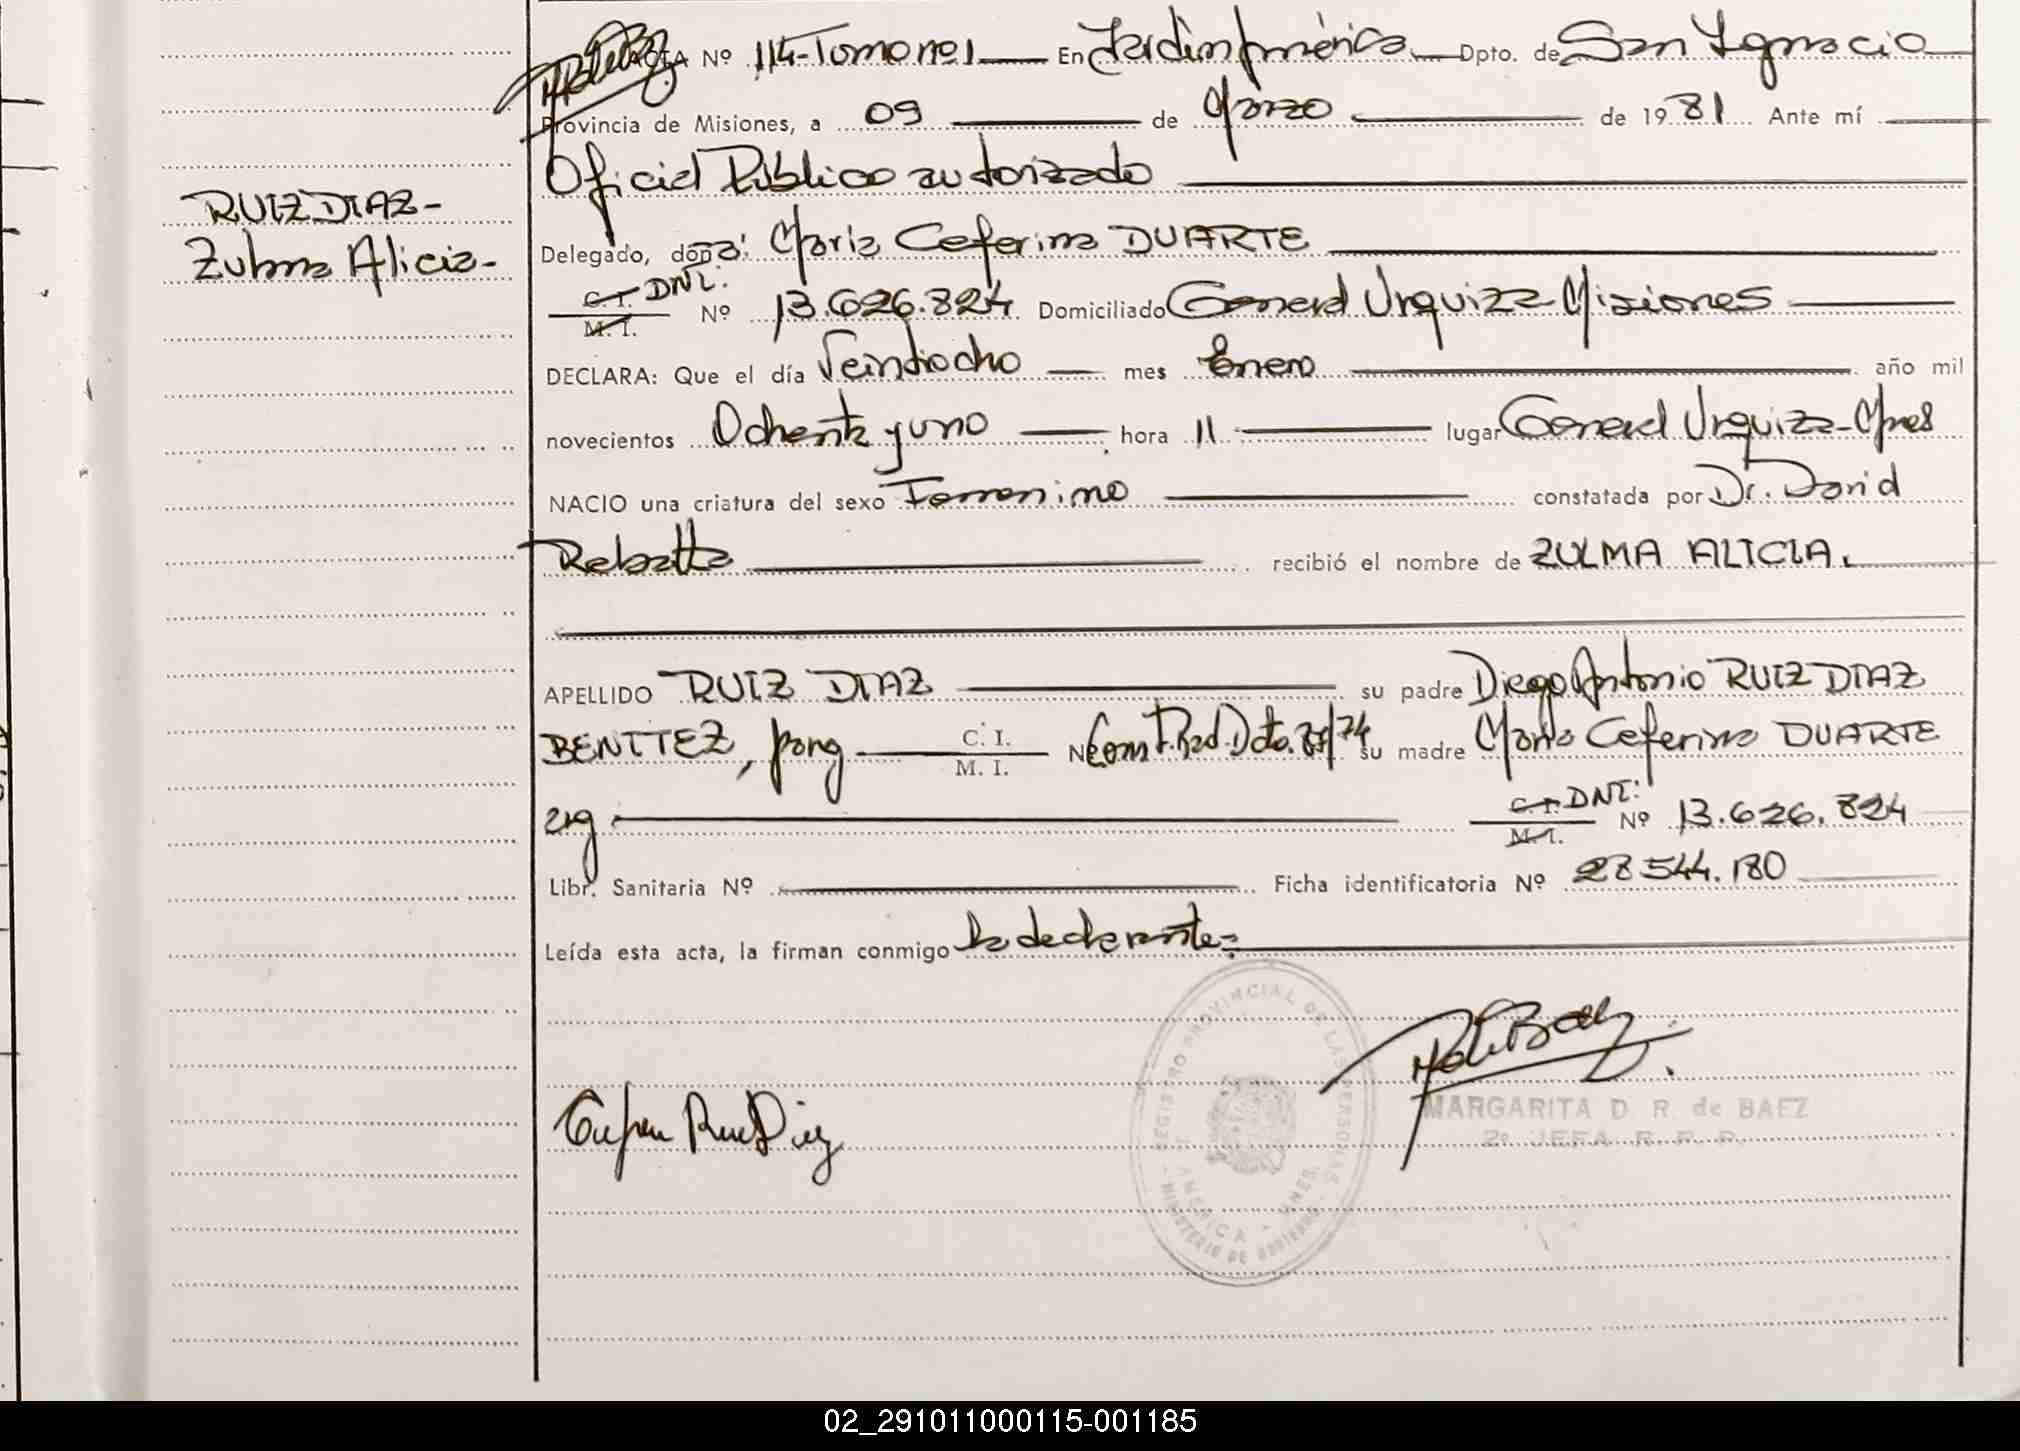 ACTA Nº 114-Tomo nº1 En Jardin América Dpto. de San Ignacio
Provincia de Misiones, a 09 de Marzo de 1981 Ante mí
Oficial Público autorizado
RUIZ DIAZ-
Zulma Alicia-
Delegado, doña: Maria Ceferina DUARTE
C. I. DNI:
M. I. Nº 13.626.824 Domiciliado General Urquiza-Misiones
DECLARA: Que el día Veintiocho mes Enero año mil
novecientos Ochenta y uno hora 11 lugar General Urquiza-Mnes
NACIO una criatura del sexo Femenino constatada por Dr. David
Rebatta recibió el nombre de ZULMA ALICIA.
APELLIDO RUIZ DIAZ su padre Diego Antonio RUIZ DIAZ
BENITEZ, parag C. I. M. I. Nº Com. T. Rad. Dcto. /74 su madre Maria Ceferina DUARTE
arg C. I. DNI: M. I. Nº 13.626.824
Libr. Sanitaria Nº Ficha identificatoria Nº 28544.180
Leída esta acta, la firman conmigo la declarante:
REGISTRO PROVINCIAL DE LAS PERSONAS
AMERICA - MNES.
MINISTERIO DE GOBIERNO
Ruiz Diaz
MARGARITA D. R. de BAEZ
2º JEFA R. P. P.
02_291011000115-001185